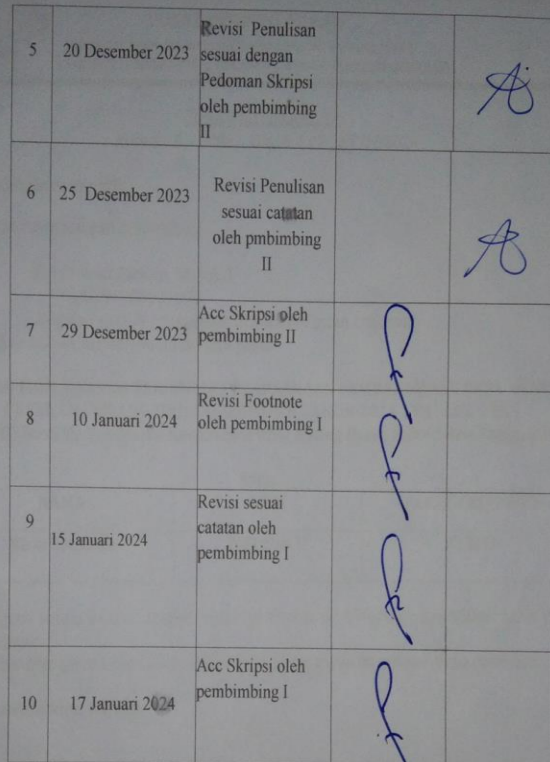 5
20 Desember 2023
Revisi Penulisan
sesuai dengan
Pedoman Skripsi
oleh pembimbing
II
6
25 Desember 2023
Revisi Penulisan
sesuai catatan
oleh pmbimbing
II
7
29 Desember 2023
Acc Skripsi oleh
pembimbing II
8
10 Januari 2024
Revisi Footnote
oleh pembimbing I
9
15 Januari 2024
Revisi sesuai
catatan oleh
pembimbing I
10
17 Januari 2024
Acc Skripsi oleh
pembimbing I